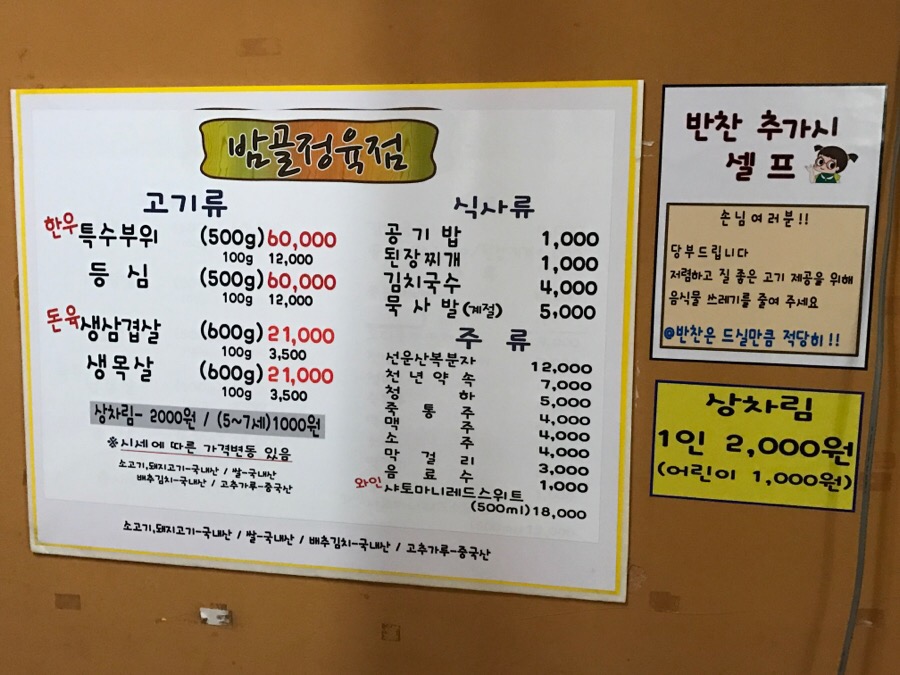 밤골정육점
고기류
한우 특수부위 (500g) 60,000
100g 12,000
등 심 (500g) 60,000
100g 12,000
돈육 생삼겹살 (600g) 21,000
100g 3,500
생목살 (600g) 21,000
100g 3,500
상차림- 2000원 / (5~7세)1000원
※시세에 따른 가격변동 있음
소고기,돼지고기-국내산 / 쌀-국내산
배추김치-국내산 / 고추가루-중국산
식사류
공 기 밥 1,000
된장찌개 1,000
김치국수 4,000
묵 사 발(계절) 5,000
주 류
선운산복분자 12,000
천 년 약 속 7,000
청 하 5,000
죽 통 주 4,000
맥 주 4,000
소 주 4,000
막 걸 리 3,000
음 료 수 1,000
와인 샤토마니레드스위트
(500ml)18,000
소고기,돼지고기-국내산 / 쌀-국내산 / 배추김치-국내산 / 고추가루-중국산
반찬 추가시
셀 프
손님여러분!!
당부드립니다
저렴하고 질 좋은 고기 제공을 위해
음식물 쓰레기를 줄여 주세요
@반찬은 드실만큼 적당히!!
상차림
1인 2,000원
(어린이 1,000원)